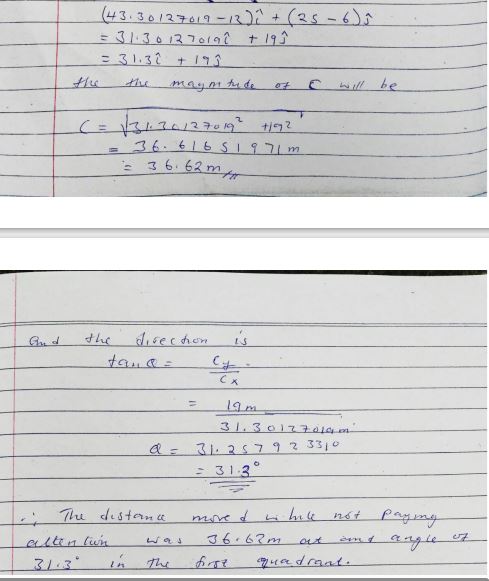 (43.30127019 - 12)î + (25 - 6)ĵ
= 31.30127019î + 19ĵ
= 31.3î + 19ĵ
the the magnitude of C will be
C = √31.30127019² + 19²
= 36.61651971m
= 36.62m
and the direction is
tan Q = Cy / Cx
= 19m / 31.30127019m
Q = 31.25792331°
= 31.3°
∴ The distance moved while not paying
attention was 36.62m at and angle of
31.3° in the first quadrant.